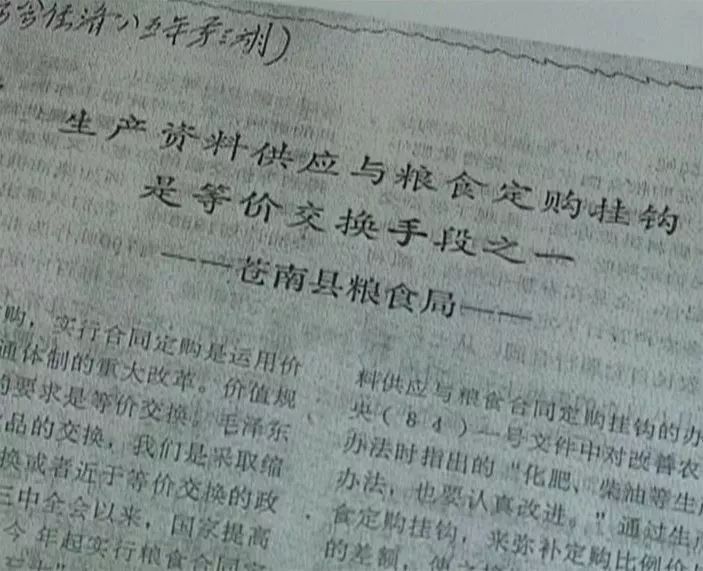 经济八五年第三期)
生产资料供应与粮食定购挂钩
是等价交换手段之一
——苍南县粮食局——
购，实行合同定购是运用价
通体制的重大改革。价值规
的要求是等价交换。毛泽东
品的交换，我们是采取缩
换或者近于等价交换的政
三中全会以来，国家提高
今年起实行粮食合同定
料供应与粮食合同定购挂钩的办
央(84)一号文件中对改善农
办法时指出的“化肥、柴油等生产
办法，也要认真改进。”通过生产
食定购挂钩，来弥补定购比例价
的差额，使之